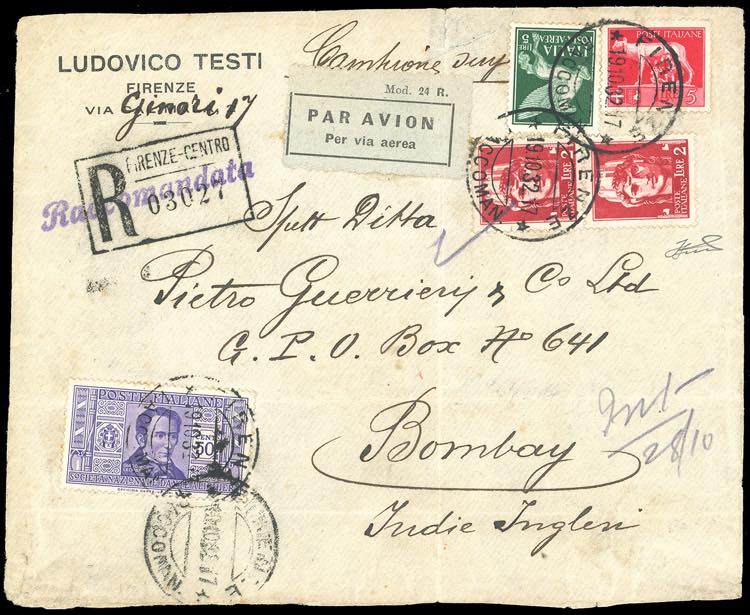 LUDOVICO TESTI
FIRENZE
VIA Ginori 17
Mod. 24 R.
PAR AVION
Per via aerea
LIRE 5
ITALIA
POSTA AEREA
POSTE ITALIANE
5
FIRENZE
19.10.32.17
RACCOMAN
FIRENZE
19.10.32.17
RACCOMAN
POSTE ITALIANE LIRE 2
POSTE ITALIANE LIRE 2
R
FIRENZE-CENTRO
03027
Raccomandata
Spett Ditta
Pietro Guerrieri & Co Ltd
G. P. O. Box No 641
Bombay
Indie Inglesi
28/10
POSTE ITALIANE
CENT 50
SOCIETÀ NAZIONALE DANTE ALIGHIERI
FIRENZE
RACCOMAN